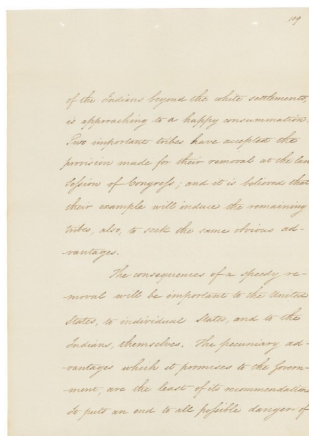 109
of the Indians beyond the white settlements,
is approaching to a happy consummation.
Two important tribes have accepted the
provision made for their removal at the last
Session of Congress; and it is believed that
their example will induce the remaining
tribes, also, to seek the same obvious ad-
vantages.
The consequences of a speedy re-
-moval will be important to the United
States, to individual States, and to the
Indians, themselves. The pecuniary ad-
-vantages which it promises to the Govern-
-ment, are the least of its recommendations
It puts an end to all possible danger of